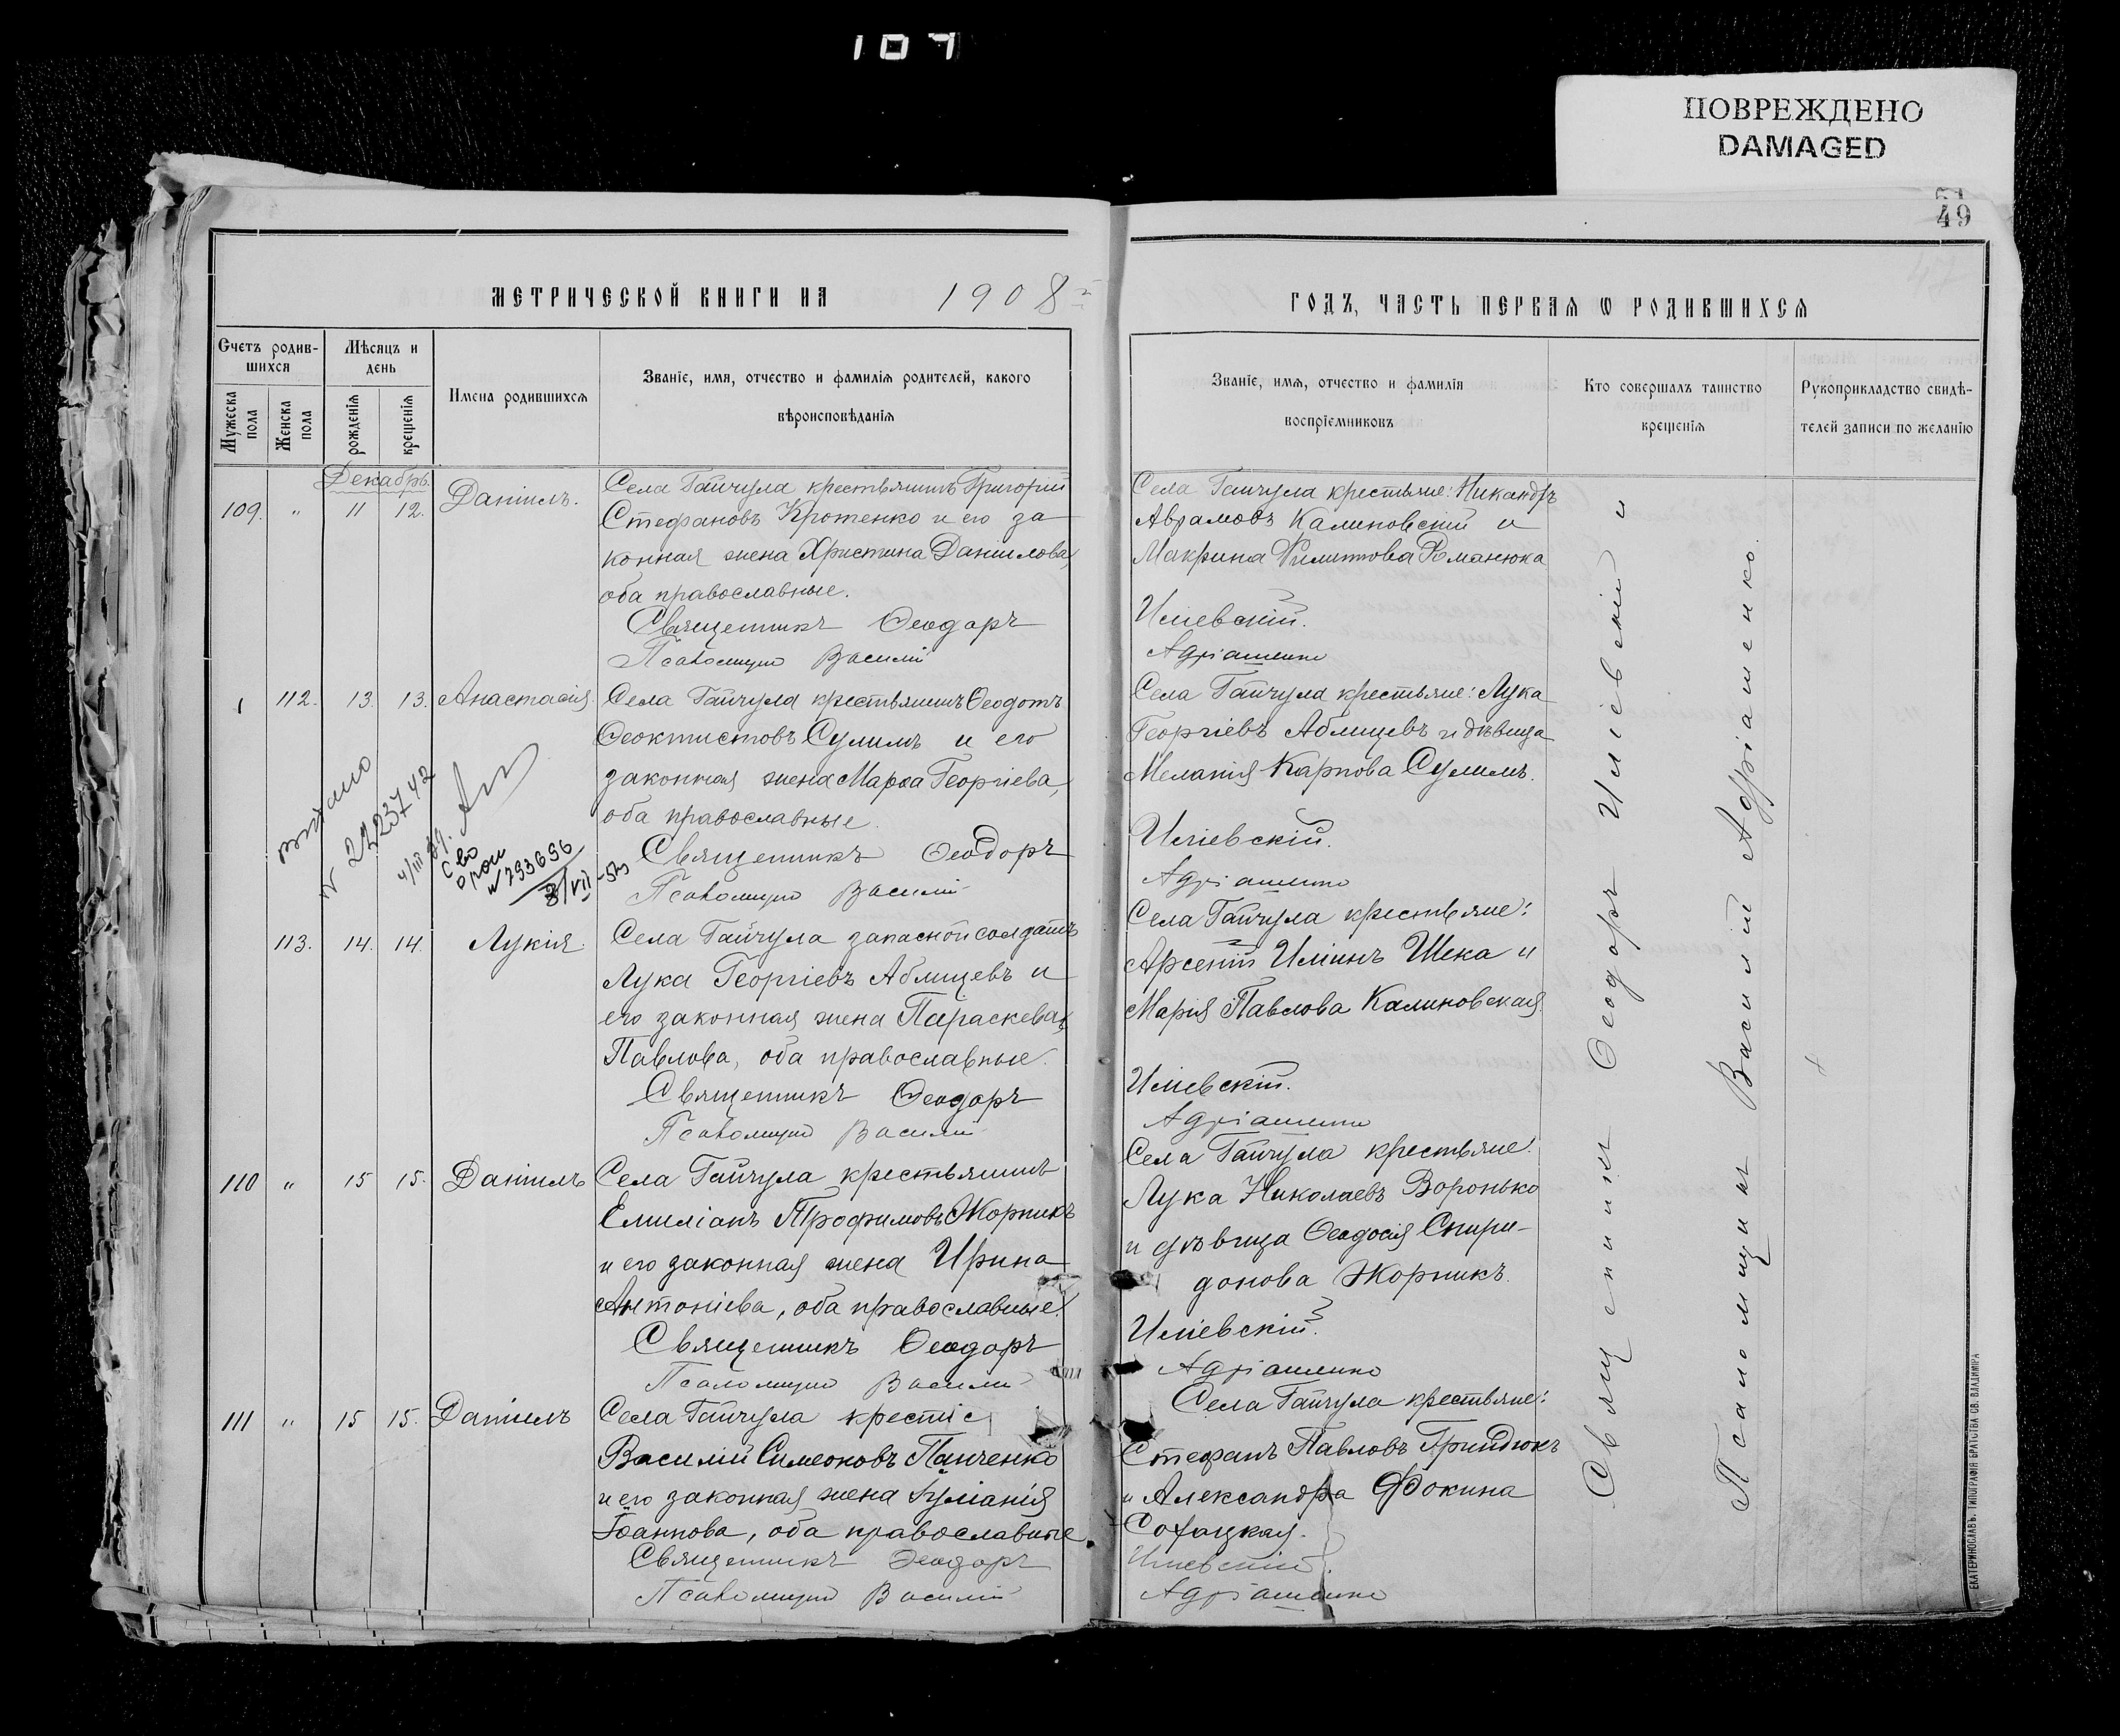 107
ПОВРЕЖДЕНО
DAMAGED
49
МЕТРИЧЕСКОЙ КНИГИ НА 1908
Счетъ родив-
шихся
Мѣсяцъ и
день
Мужеска пола
Женска пола
рожденія
крещенія
Имена родившихся
Званіе, имя, отчество и фамилія родителей, какого
вѣроисповѣданія
Декабрь.
109. " 11 12. Даніилъ.
Села Гайчула крестьянинъ Григорій
Стефановъ Кротенко и его за
конная жена Христина Данилова,
оба православные.
Священникъ Ѳеодоръ
Псаломщикъ Василій
112. 13. 13. Анастасія.
Села Гайчула крестьянинъ Ѳеодотъ
Ѳеоктистовъ Сулимъ и его
законная жена Марѳа Георгіева,
оба православные.
Священникъ Ѳеодоръ
Псаломщикъ Василій
№ 2223742
№ 793696
113. 14. 14. Лукія.
Села Гайчула запасной солдатъ
Лука Георгіевъ Аблицевъ и
его законная жена Параскева
Павлова, оба православные.
Священникъ Ѳеодоръ
Псаломщикъ Василій
110 " 15 15. Даніилъ
Села Гайчула крестьянинъ
Емиліанъ Трофимовъ Жорникъ
и его законная жена Ирина
Антоніева, оба православные.
Священникъ Ѳеодоръ
Псаломщикъ Василій
111 " 15 15. Даніилъ
Села Гайчула
Василій Симеоновъ Панченко
и его законная жена Іуліанія
Іоаннова, оба православные.
Священникъ Ѳеодоръ
Псаломщикъ Василій
ГОДЪ, ЧАСТЬ ПЕРВАЯ Ѡ РОДИВШИХСЯ
Званіе, имя, отчество и фамилія
воспріемниковъ
Кто совершалъ таинство
крещенія
Рукоприкладство свидѣ-
телей записи по желанію
Села Гайчула крестьяне: Никандръ
Аврамовъ Калиновскій и
Макрина Филиппова
Иліевскій.
Адріаненко
Села Гайчула крестьяне: Лука
Георгіевъ Аблицевъ и дѣвица
Меланія Карпова Сулимъ.
Иліевскій.
Адріаненко
Села Гайчула крестьяне:
Арсеній Иліинъ Шека и
Марія Павлова Калиновская.
Иліевскій.
Адріаненко
Села Гайчула крестьяне:
Лука Николаевъ Воронько
и дѣвица Ѳеодосія Спири-
донова Жорникъ.
Иліевскій.
Адріаненко
Села Гайчула крестьяне:
Стефанъ Павловъ Гриндюкъ
и Александра Фокина
Сохацкая.
Иліевскій.
Адріаненко
Священникъ Ѳеодоръ Иліевскій и
Псаломщикъ Василій Адріаненко.
ЕКАТЕРИНОСЛАВЪ. ТИПОГРАФІЯ БРАТСТВА СВ. ВЛАДИМІРА